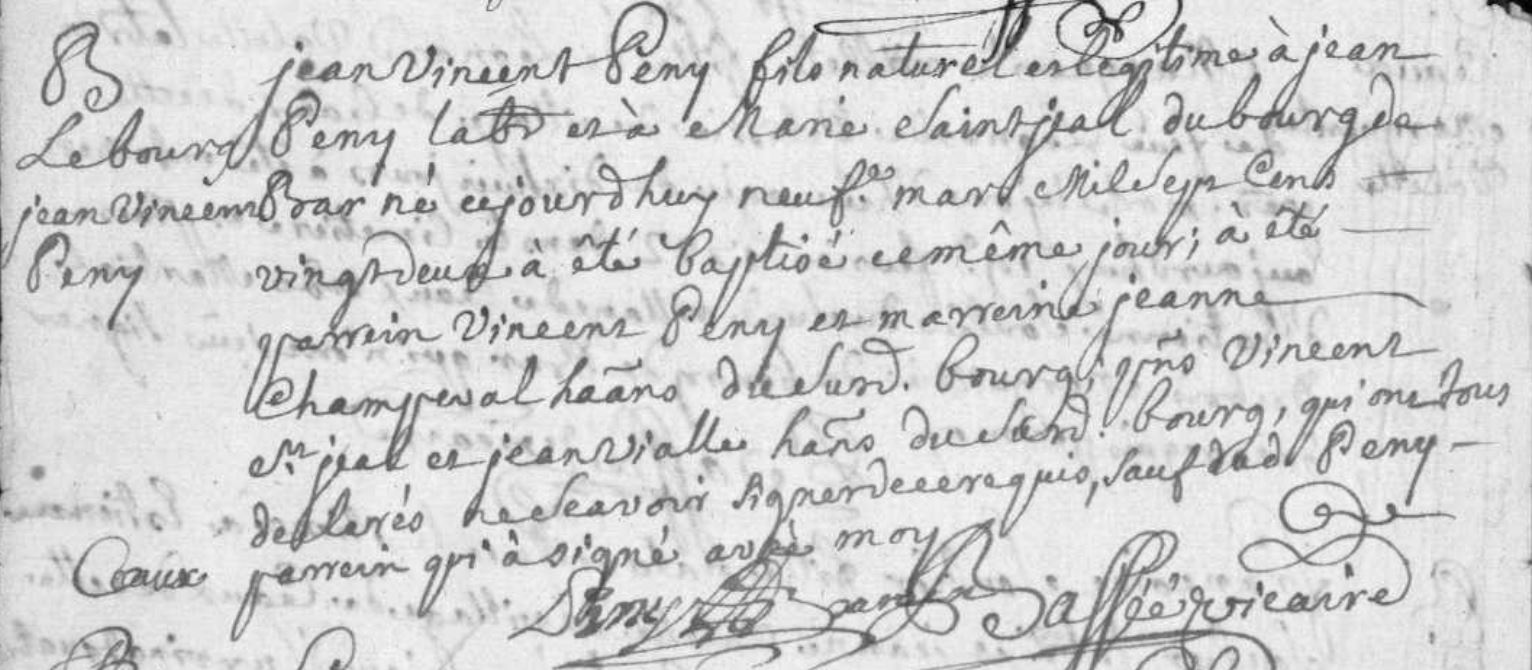 B
Lebourg
jean Vincent
Peny
jean Vincent Peny fils naturel et legitime à jean
Peny labr et à Marie Saintjeal du bourg de
Bar né cejourdhuy neuf.e mars Mil Sept Cens
vingtdeux à êté baptisé cemême jour; à été
parrein Vincent Peny et marreine jeanne
Champeval haãns du Surd. bourg; pñs Vincent
St jeal et jean Vialle hañs du Surd. bourg, qui ont tous
declarés ne Scavoir Signer de ce requis, Sauf dud Peny
parrein qui à signé avec moy
Ceaux
Peny parrein Vicaire